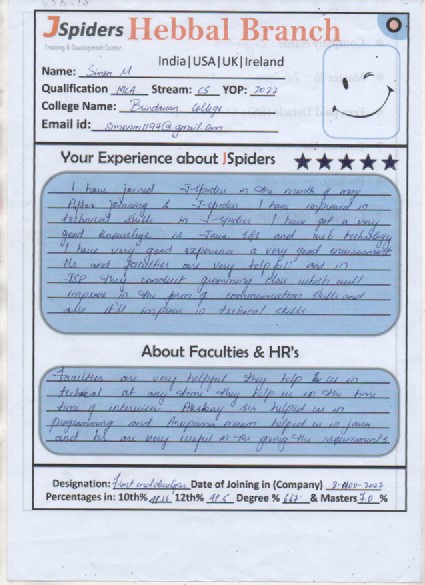 JSpiders Hebbal Branch
Training & Development Center
India|USA|UK|Ireland
Name: Simon M
Qualification MCA Stream: CS YOP: 2022
College Name: Brindavan College
Email id:
Your Experience about JSpiders
I have joined J-spiders in the month of may
After joining to J-spiders I have improved in
technical skills in J-spiders I have got a very
good knowledge is Java, SQL and web technology
I have very good experience a very good environment
Hr and faculties are very helpful and in
JSP they conduct grooming class which will
improve in the form of communication skills and
also it'll improve in technical skills
About Faculties & HR's
Faculties are very helpful they help us in
technical at any time they help us in the time
time of interview Akshay sir helped us in
programming and Anupama mam helped us in java
and hr are very useful in the giving the requirements
Designation: Front end developer Date of Joining in (Company) 8-Nov-2022
Percentages in: 10th% 12th% Degree % & Masters 70 %